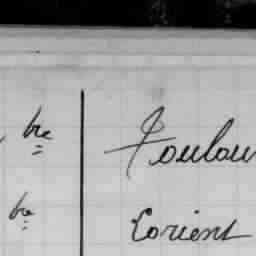 bre Toulou
bre Lorient